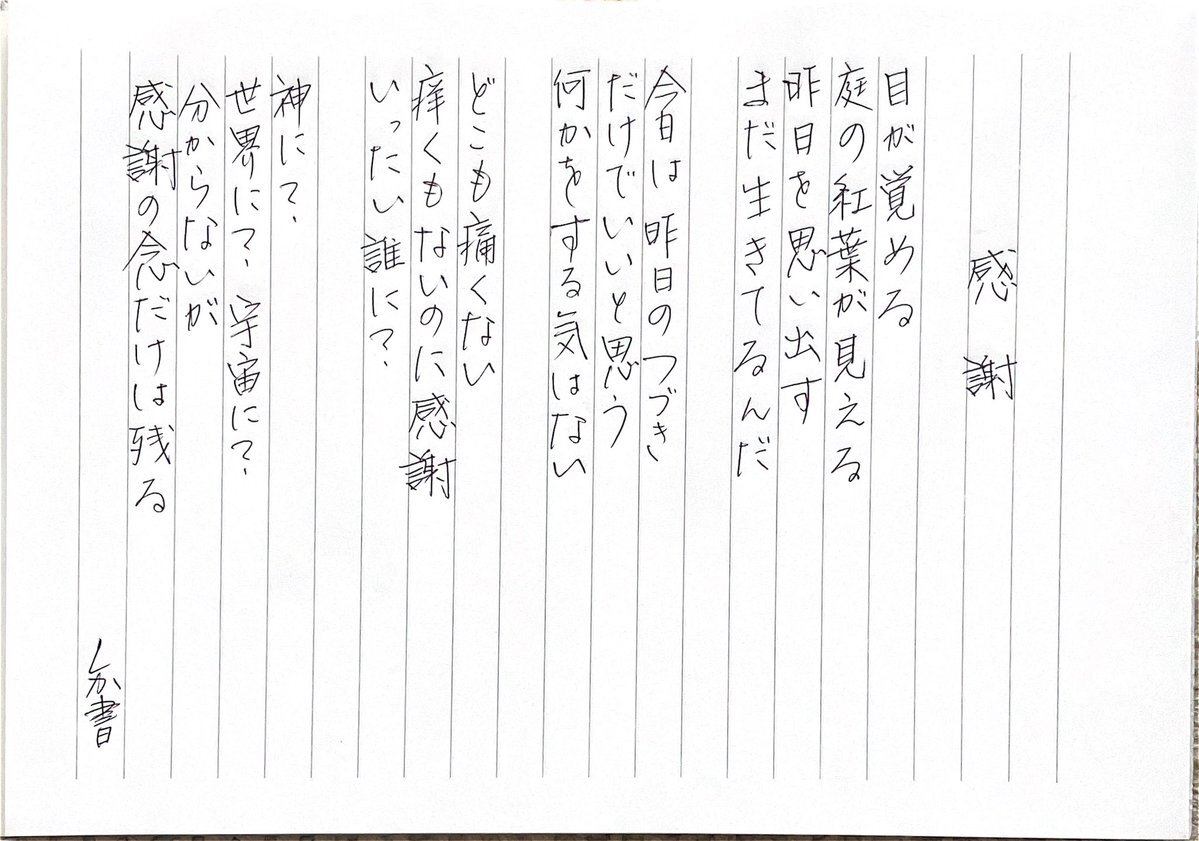 感謝
目が覚める
庭の紅葉が見える
昨日を思い出す
まだ生きてるんだ
今日は昨日のつづき
だけでいいと思う
何かをする気はない
どこも痛くない
痒くもないのに感謝
いったい誰に?
神に?
世界に? 宇宙に?
分からないが
感謝の念だけは残る
しか書